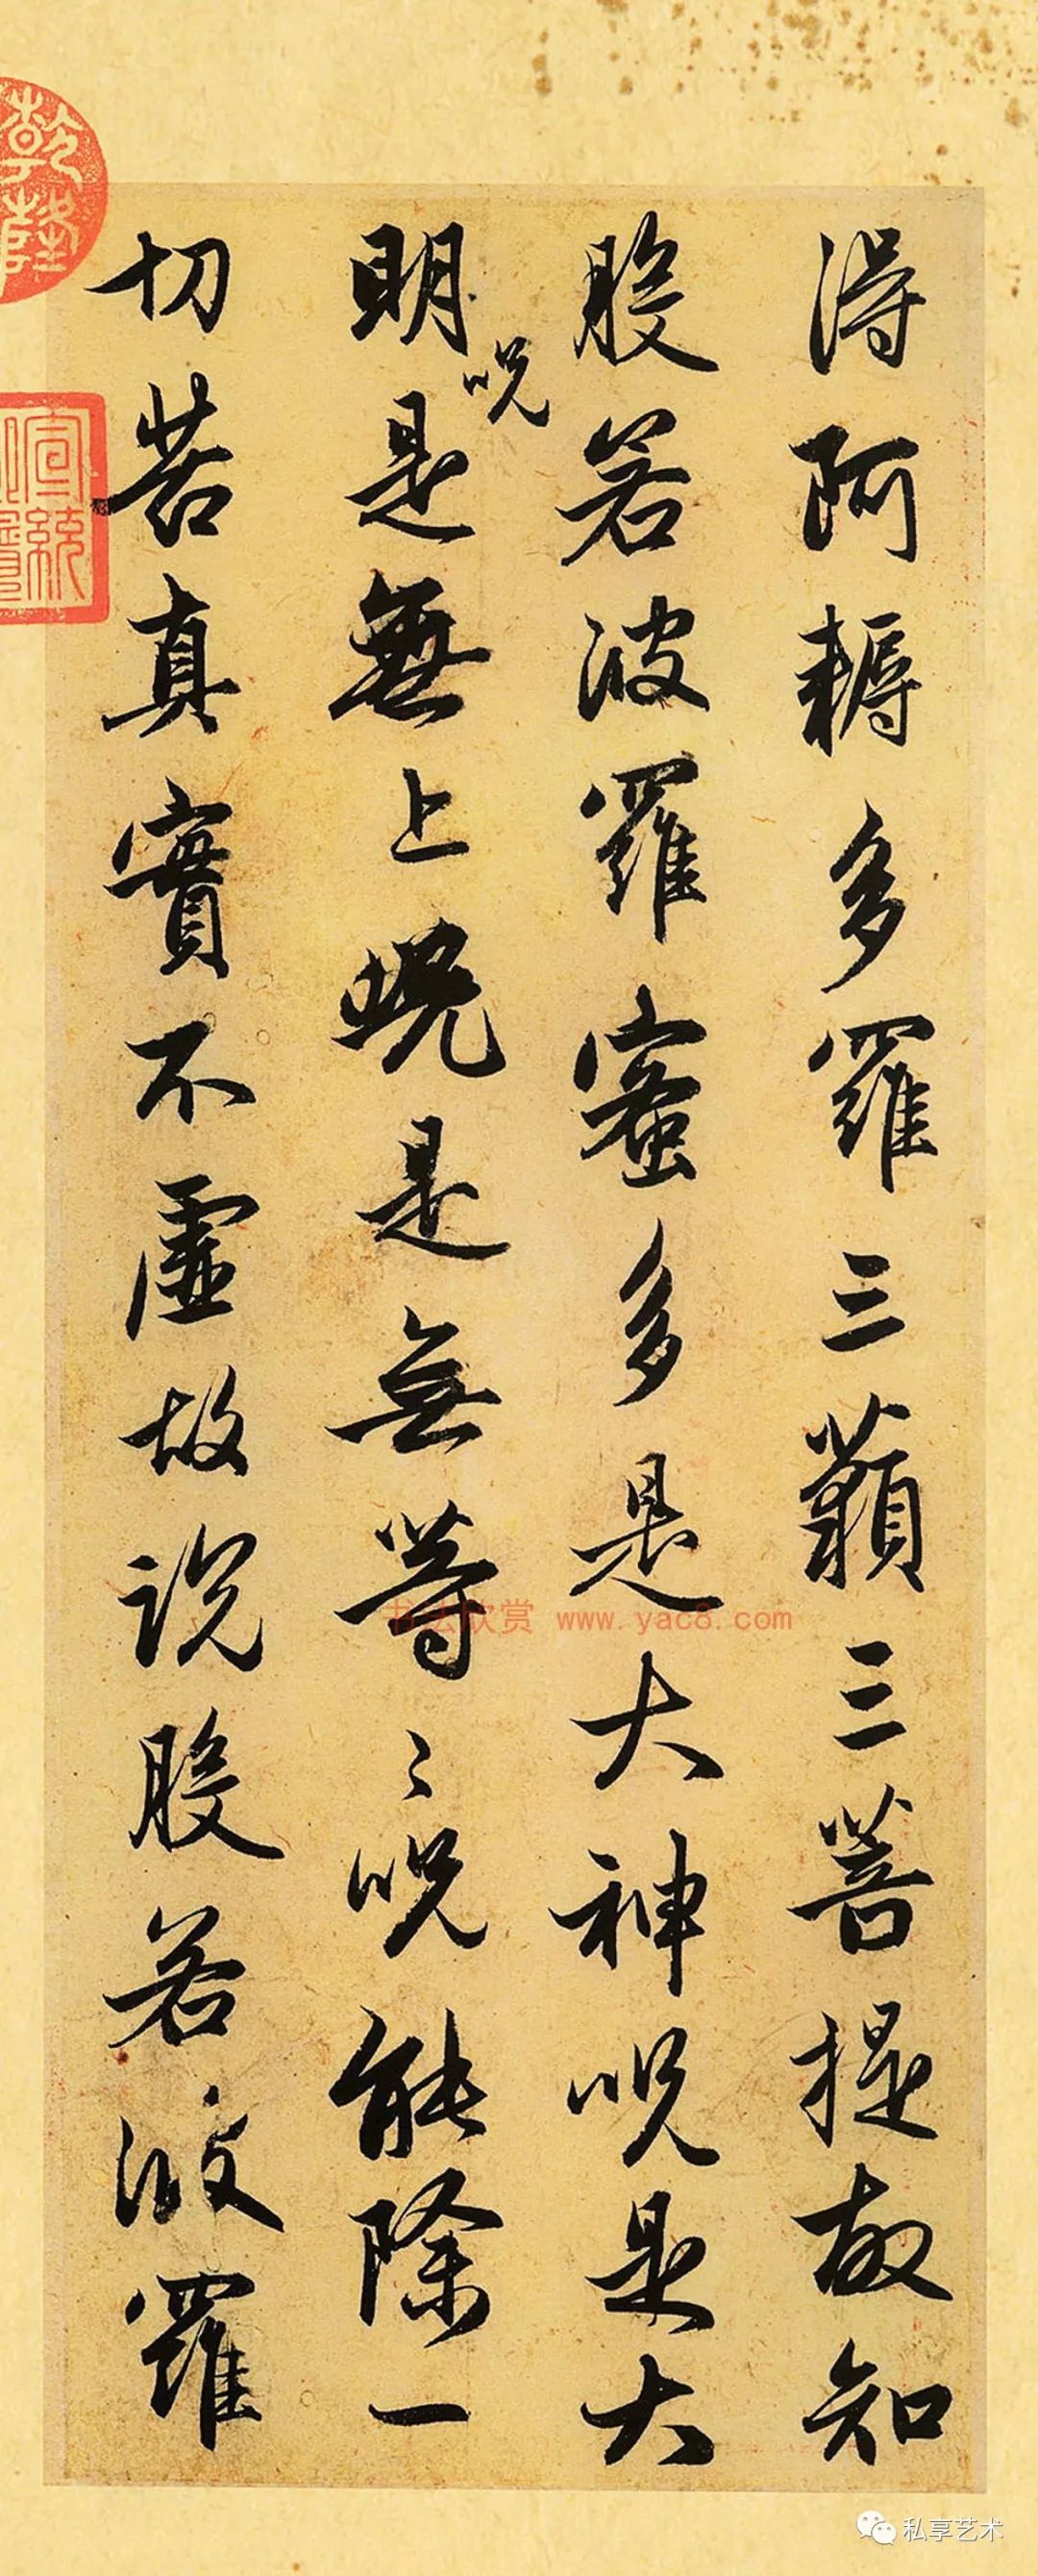 得阿耨多羅三藐三菩提故知
般若波羅蜜多是大神呪是大
明呪是無上呪是無等〻呪能除一
切苦真實不虛故說般若波羅
乾隆
宣統
书法欣赏 www.yac8.com
私享艺术